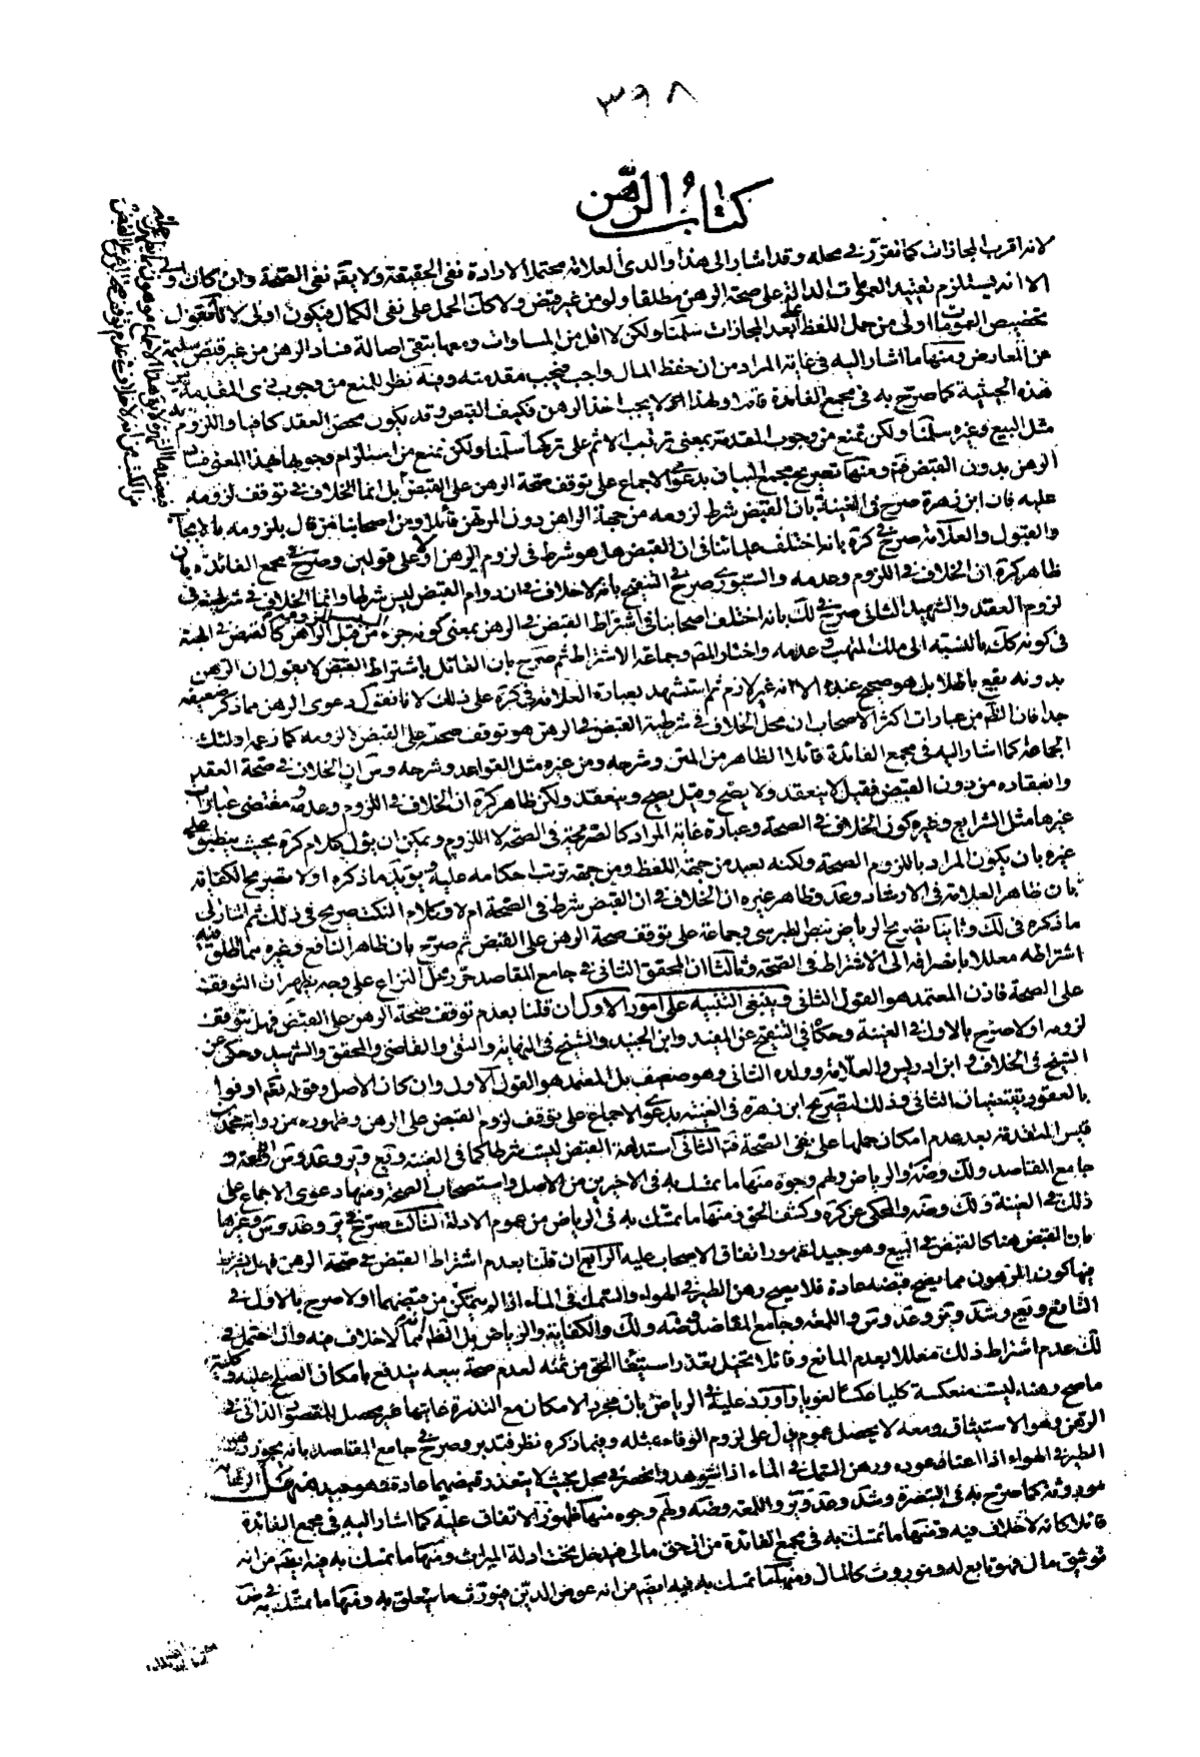 ٣٩٨
كتاب الرهن
لانه اقرب المجازات كما تقرر في محله وقد اشار الى هذا والدى العلامة محتمل الارادة نفى الحقيقة ولا يقم نفى الصحة وان كان
الا انه يستلزم تقييد العمومات الدالة على صحة الرهن مطلقا ولو من غير قبض ولا كك الحمل على نفى الكمال فيكون اولى لانا نقول
تخصيص العمومات اولى من حمل اللفظ على ابعد المجازات سلمنا ولكن لا اقل من المساوات ومعها يبقى اصالة فساد الرهن من غير قبض سليمة
عن المعارض ومنها ما اشار اليه في غاية المراد من ان حفظ المال واجب فيجب مقدمته وفيه نظر للمنع من وجوب ذى المقدمة
هذه الحيثية كما صرح به في مجمع الفائدة قائلا ولهذا لا يجب اخذ الرهن فكيف القبض وقد يكون محض العقد كافيا واللزوم
مثل البيع وغيره سلمنا ولكن نمنع من وجوب المقدمة بمعنى ترتب الاثم على تركها سلمنا ولكن نمنع من استلزام وجوبها بهذا المعنى فساد
الرهن بدون القبض ومنها تصريح مجمع البيان بدعوى الاجماع على توقف صحة الرهن على القبض بل انما الخلاف في توقف لزومه
عليه فان ابن زهرة صرح في الغنية بان القبض شرط لزومه من جهة الراهن دون المرتهن قائلا ومن اصحابنا من قال بلزومه بالايجاب
والقبول والعلامة صرح في كره بانه اختلف علمائنا في ان القبض هل هو شرط في لزوم الرهن اولا على قولين وصرح في مجمع الفائدة بان
ظاهر كره ان الخلاف في اللزوم وعدمه والسيورى صرح في التنقيح بانه لا خلاف في ان دوام القبض ليس شرطا وانما الخلاف في شرطيته في
لزوم العقد والشهيد الثانى صرح في لك بانه اختلف اصحابنا في اشتراط القبض في الرهن بمعنى كونه جزء من قبل الراهن كالقبض في الهبة
في كونه كك بالنسبة الى ملك المتهب وعدمه واختار المصم وجماعة الاشتراط ثم صرح بان القائل باشتراط القبض لا يقول ان الرهن
بدونه يقع باطلا بل هو صحيح عنده الا انه غير لازم ثم استشهد بعبارة العلامة في كره على ذلك لانا نقول دعوى الرهن مما ذكر ضعيفة
جدا فان الظم من عبارات اكثر الاصحاب ان محل الخلاف في شرطية القبض في الرهن هو توقف صحته على القبض لا لزومه كما زعمه اولئك
الجماعة كما اشار اليه في مجمع الفائدة قائلا الظاهر من المتن وشرحه ومن غيره مثل القواعد وشرحه وس ان الخلاف في صحة العقد
وانعقاده من دون القبض فقيل لا ينعقد ولا يصح وقيل يصح وينعقد ولكن ظاهر كره ان الخلاف في اللزوم وعدمه ومقتضى عبارات
غيرها مثل الشرايع وغيره كون الخلاف في الصحة وعبارة غاية المراد كالصريحة في الصحة لا اللزوم ويمكن ان يؤل كلام كره بحيث ينطبق على
غيره بان يكون المراد باللزوم الصحة ولكنه بعيد من جهة اللفظ ومن جهة ترتب احكامه عليه ويؤيد ما ذكره اولا تصريح الكفاية
بان ظاهر العلامة في الارشاد وعد وظاهر غيره ان الخلاف في ان القبض شرط في الصحة ام لا وكلام النكت صريح في ذلك ثم اشار الى
ما ذكره في لك وثانيا تصريح الرياض بنص الطبرسى وجماعة على توقف صحة الرهن على القبض ثم صرح بان ظاهر النافع وغيره مما اطلق فيه
اشتراطه معللا بانصرافه الى الاشتراط في الصحة وثالثا ان المحقق الثانى في جامع المقاصد حرر محل النزاع على وجه يظهر ان التوقف
على الصحة فاذن المعتمد هو القول الثانى وينبغى التنبيه على امور الاول ان قلنا بعدم توقف صحة الرهن على القبض فهل يتوقف
لزومه اولا صرح بالاول في الغنية وحكاه في التنقيح عن المفيد وابن الجنيد والشيخ في النهاية والتقى والقاضى والمحقق والشهيد وحكى عن
الشيخ في الخلاف وابن ادريس والعلامة وولده الثانى وهو ضعيف بل المعتمد هو القول الاول وان كان الاصل وقوله تعم اوفوا
بالعقود يقتضيان الثانى وذلك لتصريح ابن زهرة في الغنية بدعوى الاجماع على توقف لزوم القبض على الرهن وظهوره من رواية محمد بن
قيس المتقدمة بعد عدم امكان حملها على نفى الصحة فتم الثانى استدامة القبض ليست شرطا كما في الغنية ويع وير وعد وس واللمعة و
جامع المقاصد ولك وضه والرياض ولهم وجوه منها ما تمسك به في الاخيرين من الاصل واستصحاب الصحة ومنها دعوى الاجماع على
ذلك في الغنية ولك وضه والمحكى عن كره وكشف الحق ومنها ما تمسك به في الرياض من عموم الادلة الثالث صرح في ير وعد وس وغيرها
بان القبض هنا كالقبض في البيع وهو جيد لظهور اتفاق الاصحاب عليه الرابع ان قلنا بعدم اشتراط القبض في صحة الرهن فهل يشترط
فيها كون المرهون مما يصح قبضه عادة فلا يصح رهن الطير في الهواء والسمك في الماء اذا لم يتمكن من قبضهما اولا صرح بالاول في
النافع ويع وشد وير وعد وس واللمعة وجامع المقاصد وضه ولك والكفاية والرياض بل الظم انه مما لا خلاف فيه وان احتمل في
لك عدم اشتراط ذلك معللا بعدم المانع وقائلا تخيل تعذر استيفاء الحق من ثمنه لعدم صحة بيعه يندفع بامكان الصلح عليه وكلية
ما صح وهنه ليست منعكسة كليا عكسا لغويا واورد عليه في الرياض بان مجرد الامكان مع الندرة غايتها غير محصل للمقصود الذاتى في
الرهن وهو الاستيثاق ومعه لا يحصل عموم يدل على لزوم الوفاء بمثله وفيما ذكره نظر فتدبر وصرح في جامع المقاصد بانه يجوز رهن
الطير في الهواء اذا اعتاد عوده ورهن السمك في الماء اذا شوهد وانحصر في محل بحيث لا يتعذر قبضهما عادة وهو جيد منهل الرهانة
موروثة كما صرح به في التبصرة وشد وعد وير واللمعة وضه ولهم وجوه منها ظهور الاتفاق عليه كما اشار اليه في مجمع الفائدة
قائلا كانه لا خلاف فيه ومنها ما تمسك به في مجمع الفائدة من انه حق مالى فيدخل تحت ادلة الميراث ومنها ما تمسك به فيه ايضم من انه
توثيق مال فهو تابع له وموروث كالمال ومنها ما تمسك به فيه ايضم من انه عوض الدين فيورث ما يتعلق به ومنها ما تمسك به في ضه